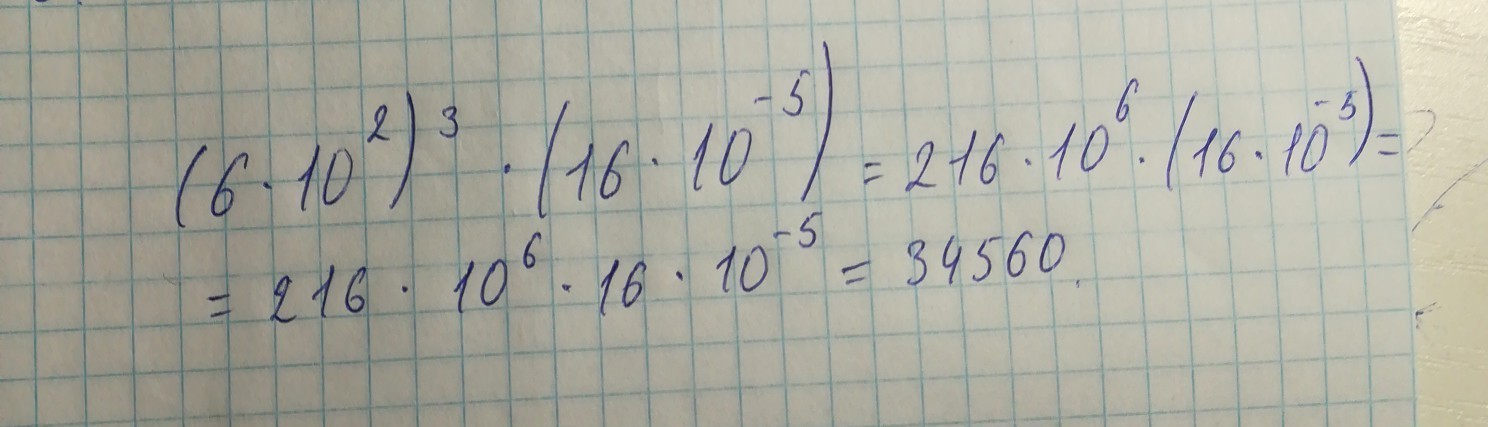 (6·10²)³ · (16·10⁻⁵) = 216·10⁶·(16·10⁻⁵)=
= 216 · 10⁶ · 16 · 10⁻⁵ = 34560.